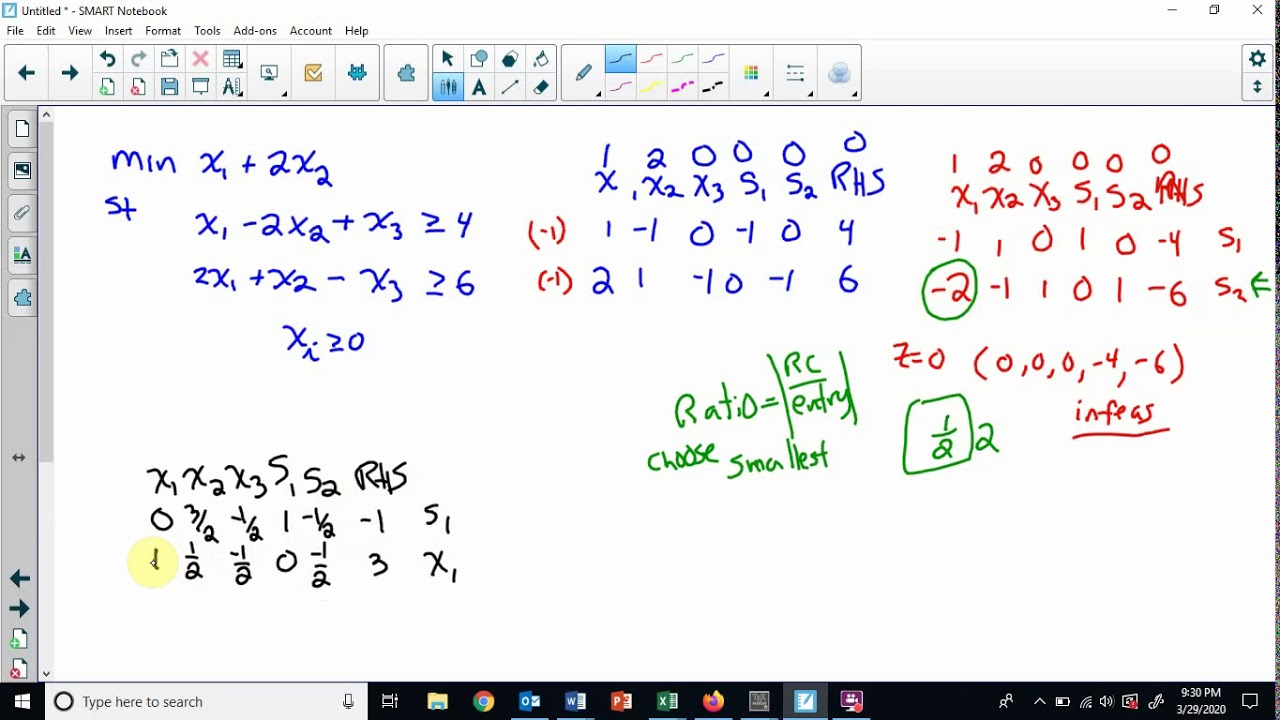 Untitled * - SMART Notebook
File Edit View Insert Format Tools Add-ons Account Help
min x₁ + 2x₂
st
x₁ - 2x₂ + x₃ ≥ 4
2x₁ + x₂ - x₃ ≥ 6
xᵢ ≥ 0
1 2 0 0 0 0
x₁ x₂ x₃ S₁ S₂ RHS
(-1) 1 -1 0 -1 0 4
(-1) 2 1 -1 0 -1 6
1 2 0 0 0 0
x₁ x₂ x₃ S₁ S₂ RHS
-1 1 0 1 0 -4 S₁
-2 -1 1 0 1 -6 S₂ ←
z=0 (0,0,0,-4,-6)
infeas
Ratio = |RC/entry|
choose smallest
1/2 2
x₁ x₂ x₃ S₁ S₂ RHS
0 3/2 -1/2 1 -1/2 -1 S₁
1 1/2 -1/2 0 -1/2 3 x₁
Type here to search
9:30 PM
3/29/2020